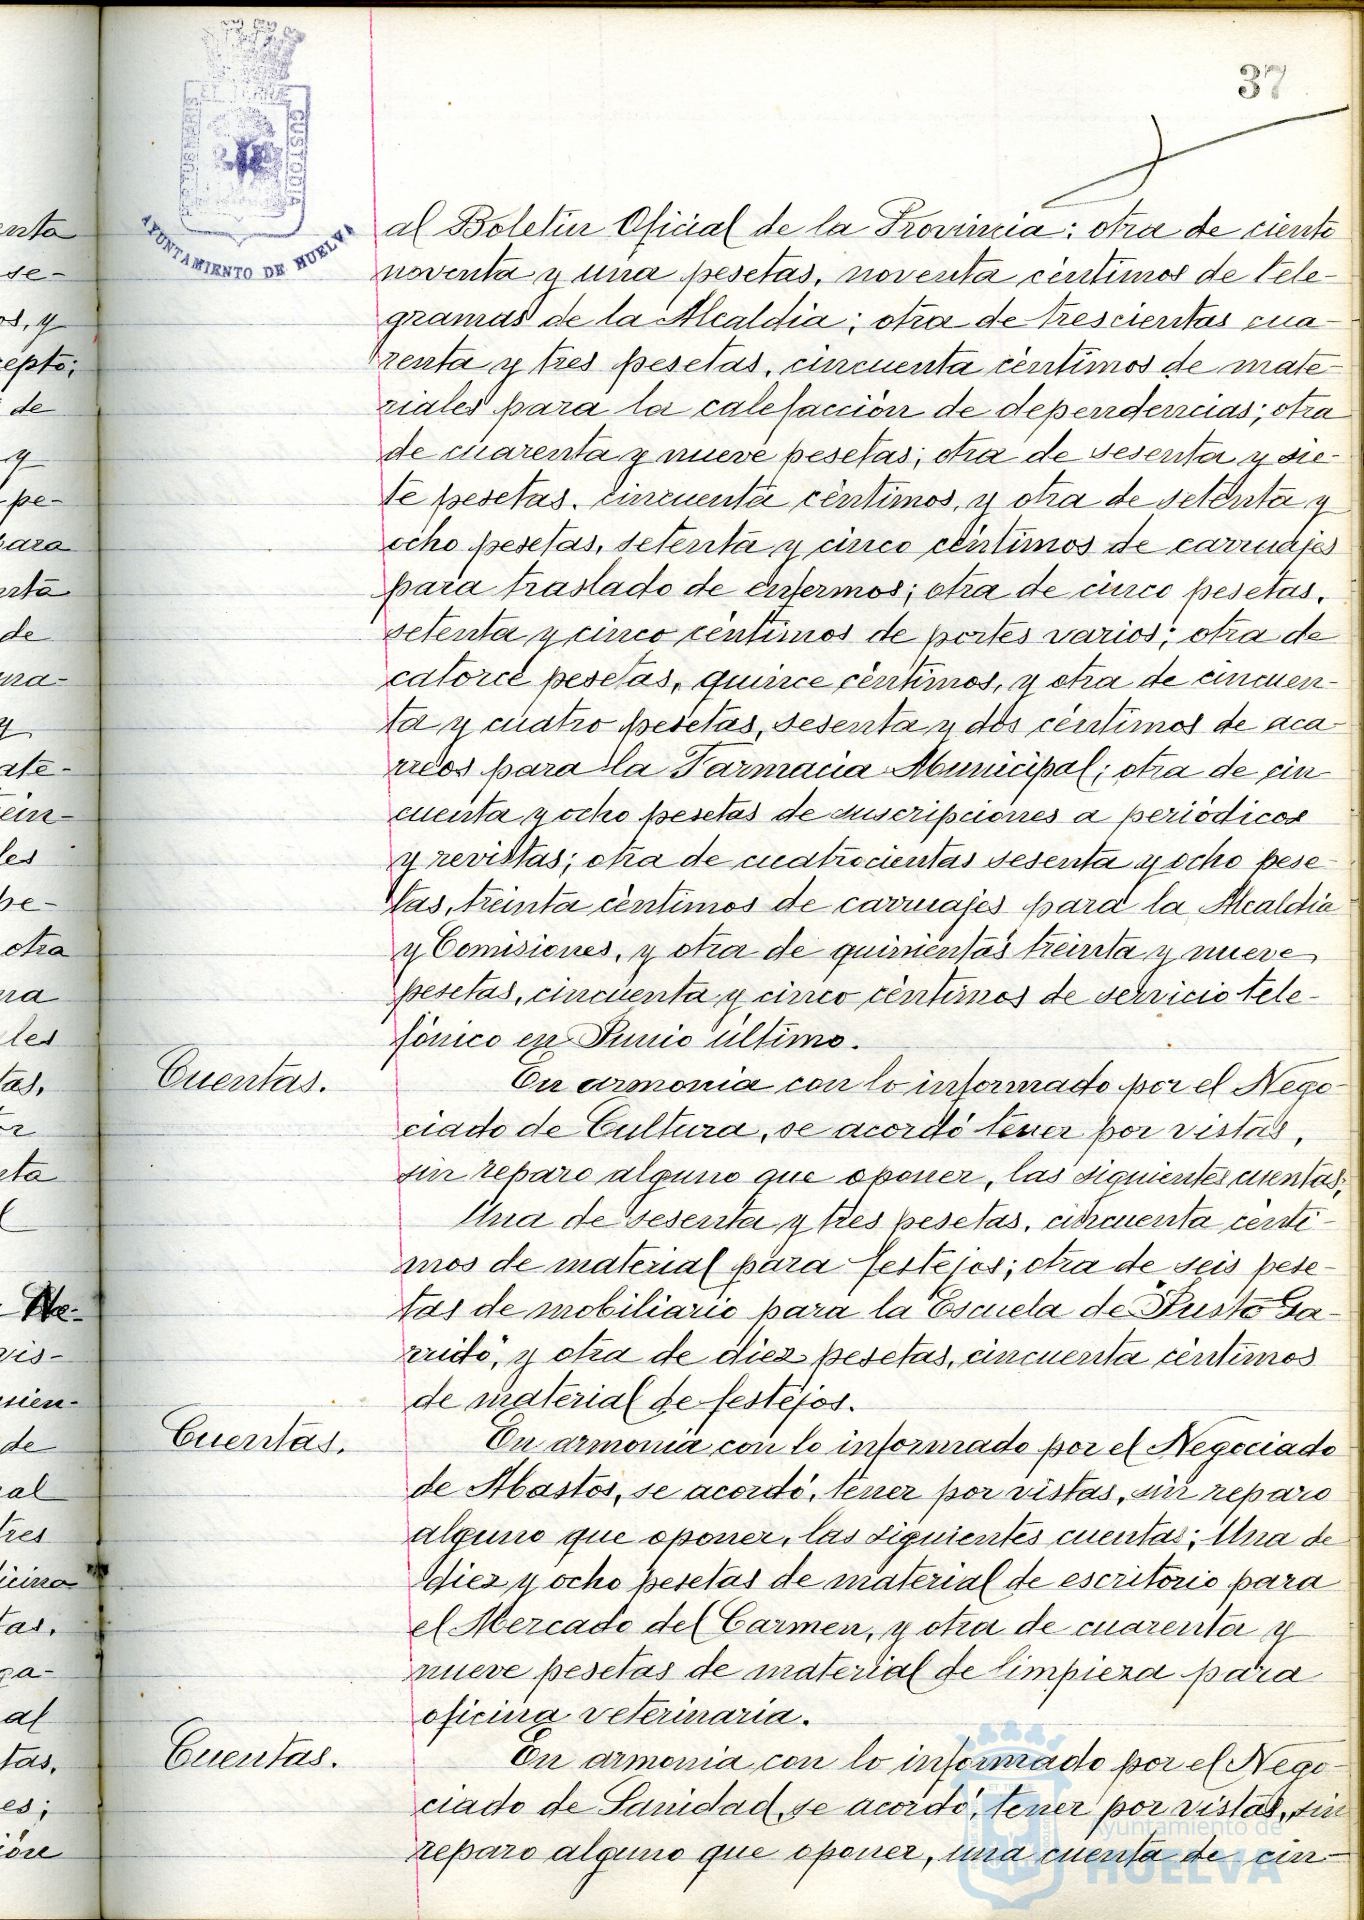 37
PORTUS MARIS
ET TERRÆ
CUSTODIA
AYUNTAMIENTO DE HUELVA
al Boletin Oficial de la Provincia; otra de ciento
noventa y una pesetas, noventa céntimos de tele-
gramas de la Alcaldia; otra de trescientas cua-
renta y tres pesetas, cincuenta céntimos de mate-
riales para la calefacción de dependencias; otra
de cuarenta y nueve pesetas; otra de sesenta y sie-
te pesetas, cincuenta céntimos, y otra de setenta y
ocho pesetas, setenta y cinco céntimos de carruajes
para traslado de enfermos; otra de cinco pesetas,
setenta y cinco céntimos de portes varios; otra de
catorce pesetas, quince céntimos, y otra de cincuen-
ta y cuatro pesetas, sesenta y dos céntimos de aca-
rreos para la Farmacia Municipal; otra de cin
cuenta y ocho pesetas de suscripciones a periódicos
y revistas; otra de cuatrocientas sesenta y ocho pese-
tas, treinta céntimos de carruajes para la Alcaldia
y Comisiones, y otra de quinientas treinta y nueve
pesetas, cincuenta y cinco céntimos de servicio tele-
fónico en Junio último.
Cuentas.
En armonia con lo informado por el Nego-
ciado de Cultura, se acordó tener por vistas,
sin reparo alguno que oponer, las siguientes cuentas;
Una de sesenta y tres pesetas, cincuenta cénti-
mos de material para festejos; otra de seis pese-
tas de mobiliario para la Escuela de "Justo Ga-
rrido", y otra de diez pesetas, cincuenta céntimos
de material de festejos.
Cuentas.
En armonia con lo informado por el Negociado
de Abastos, se acordó, tener por vistas, sin reparo
alguno que oponer, las siguientes cuentas; Una de
diez y ocho pesetas de material de escritorio para
el Mercado del Carmen, y otra de cuarenta y
nueve pesetas de material de limpieza para
oficina veterinaria.
Cuentas.
En armonia con lo informado por el Nego-
ciado de Sanidad, se acordó, tener por vistas, sin
reparo alguno que oponer, una cuenta de cin-
Ayuntamiento de
HUELVA